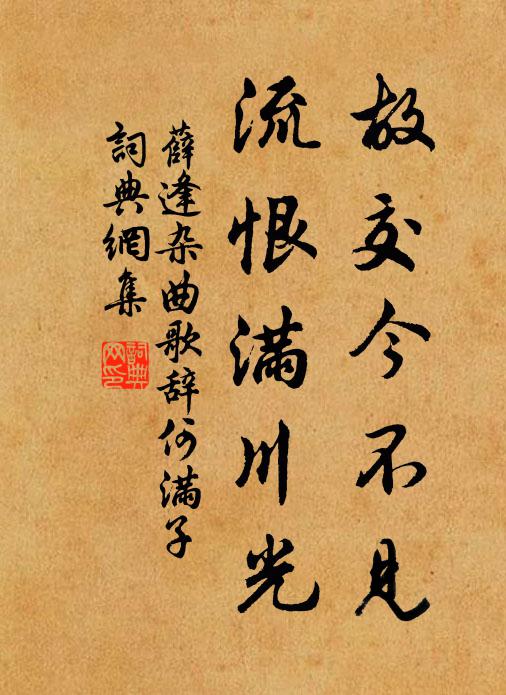 故交今不见
流恨满川光
薛逢杂曲歌辞何满子
詞典網集
詞典网印